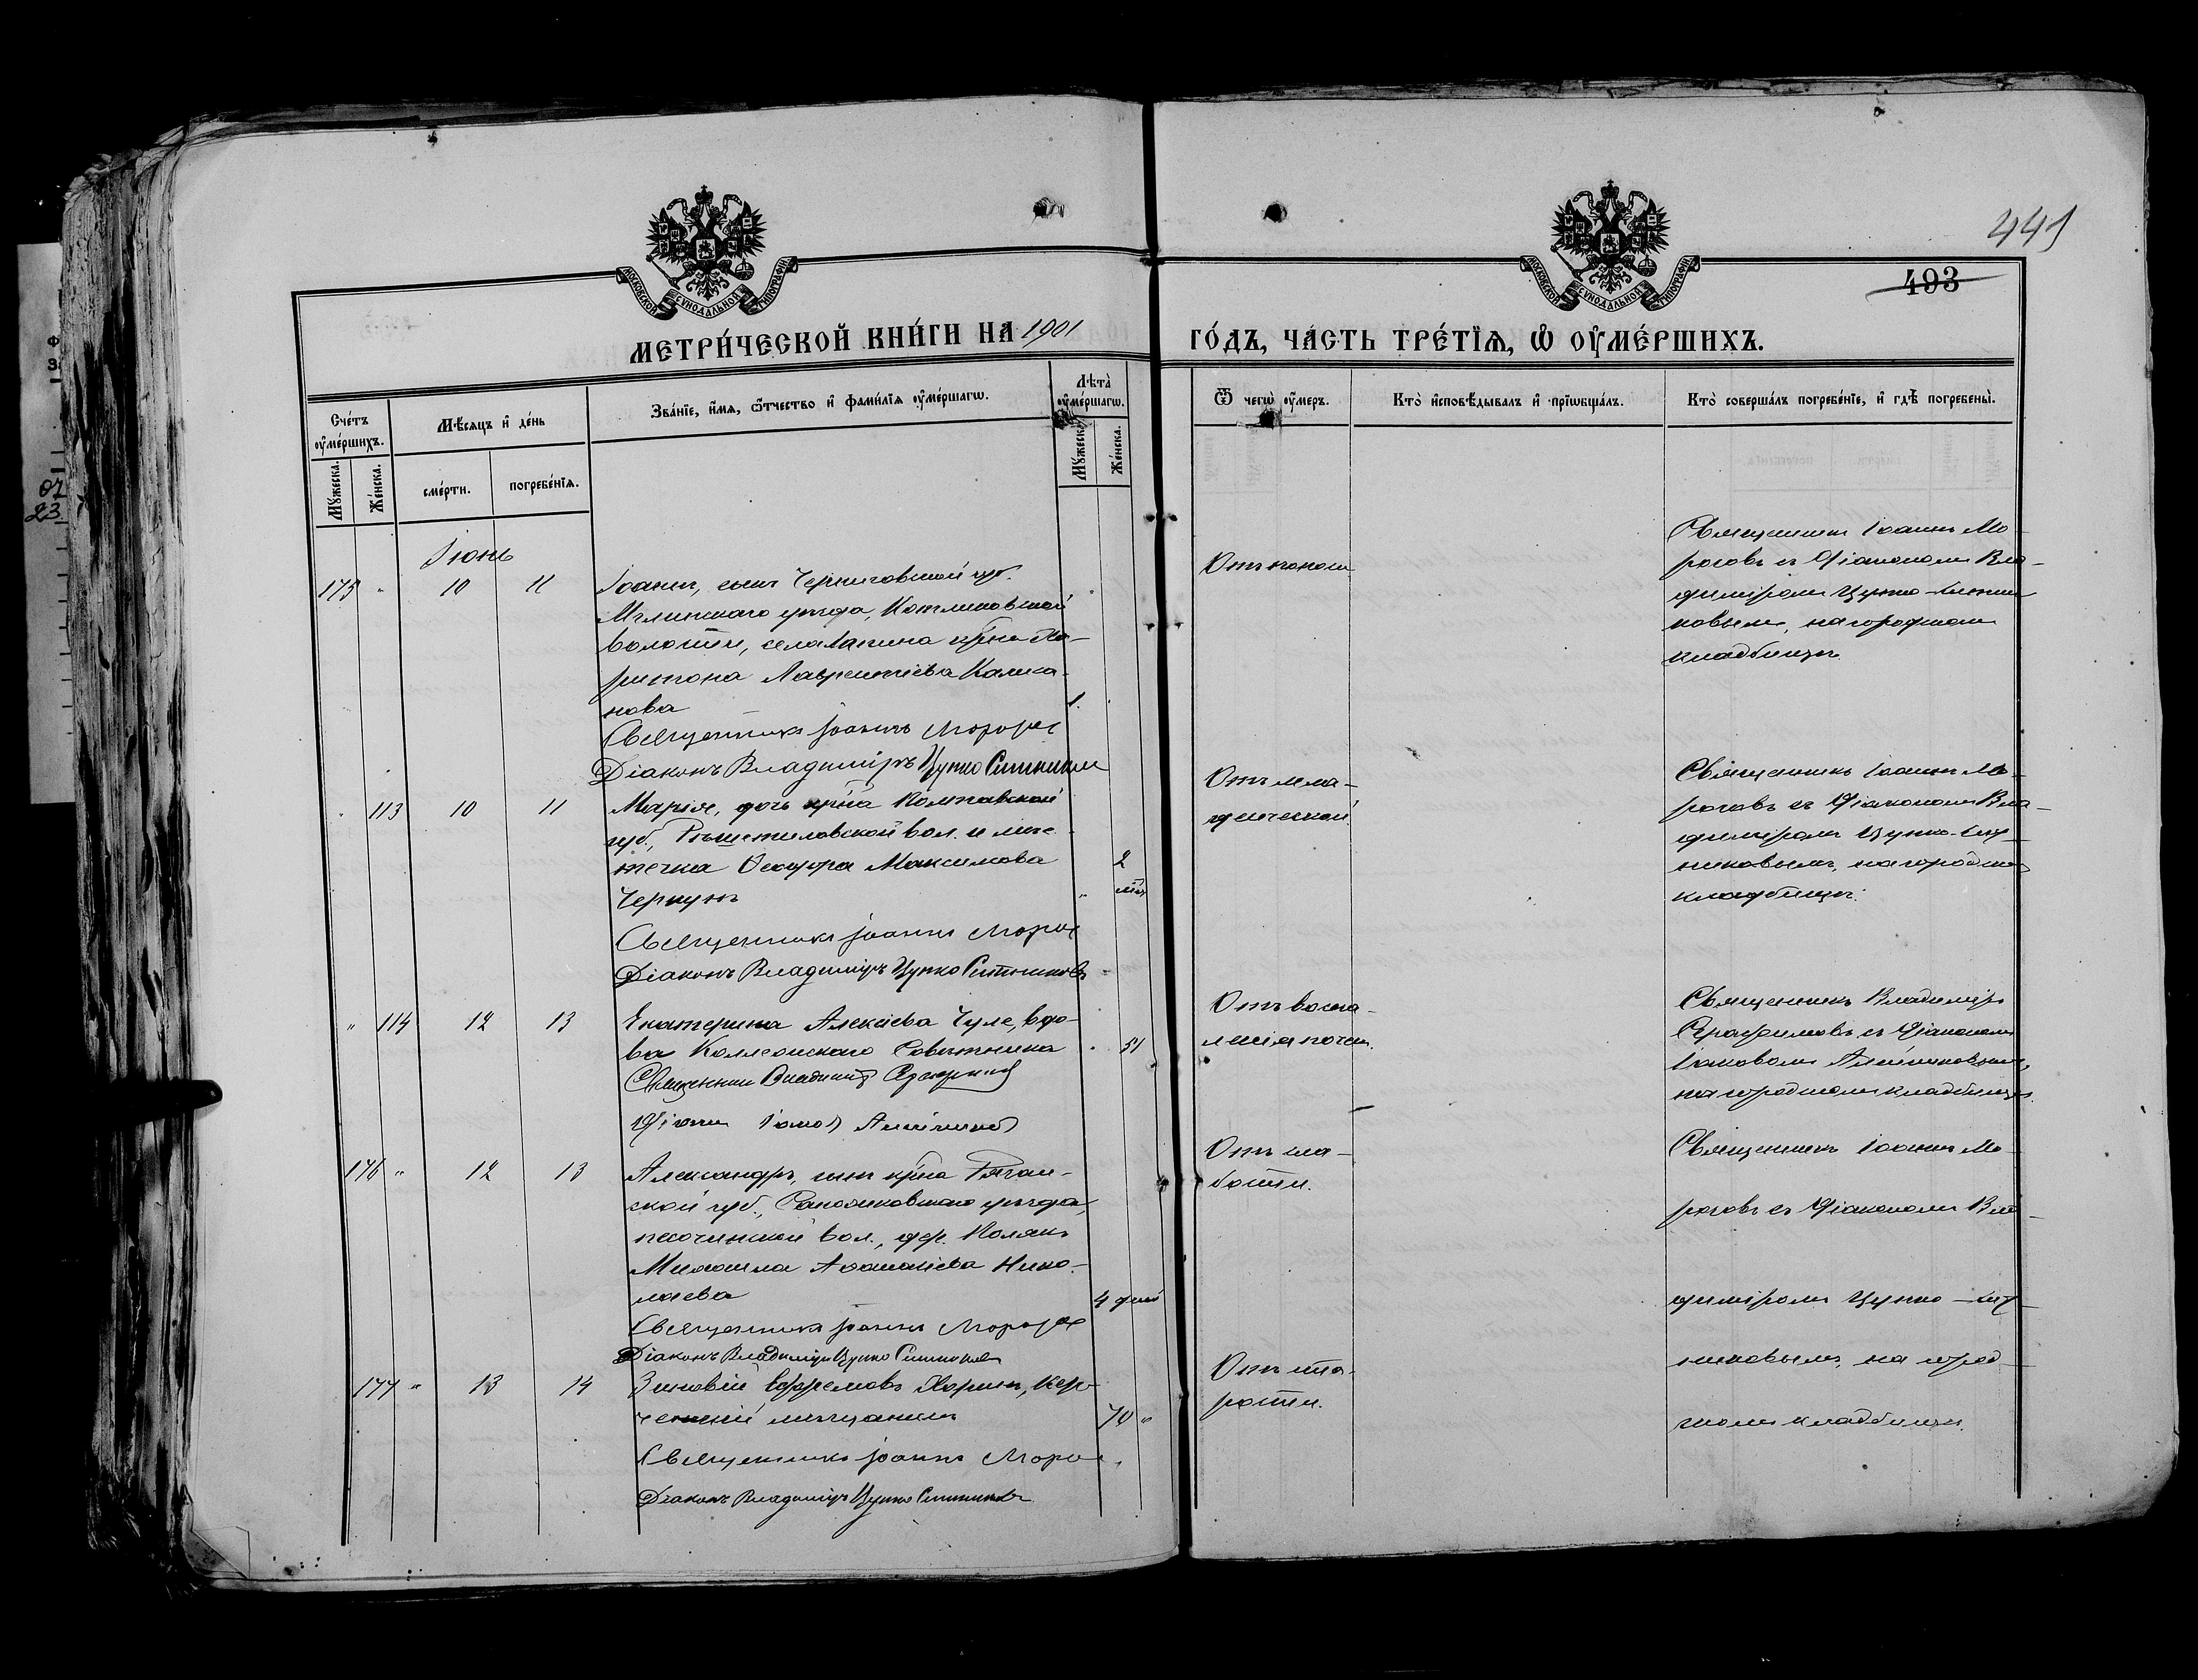 441
493
МОСКОВСКОЙ СѴНОДАЛЬНОЙ ТИПОГРАФІИ
МОСКОВСКОЙ СѴНОДАЛЬНОЙ ТИПОГРАФІИ
МЕТРИ́ЧЕСКОЙ КНИ́ГИ НА 1901
ГО́ДЪ, ЧА́СТЬ ТРЕ́ТЇѦ, Ѡ҆ ОУ҆МЕ́РШИХЪ.
Сче́тъ оу҆ме́ршихъ.
Мꙋ́жеска.
Же́нска.
Мѣ́сяцъ и҆ де́нь
сме́рти.
погребе́нїѧ.
Зва́нїе, и҆́мѧ, ѻ҆́тчество и҆ фами́лїѧ оу҆ме́ршагѡ.
Лѣ́та̀ оу҆ме́ршагѡ.
Мꙋ́жеска.
Же́нска.
Ѿ чегѡ̀ оу҆́меръ.
Кто̀ и҆сповѣ́дывалъ и҆ прїѡбща́лъ.
Кто̀ соверша́лъ погребе́нїе, и҆ гдѣ̀ погребены̀.
Іюнь
175 " 10 11
Іоаннъ, сынъ Черниговской губ.
Мглинскаго уѣзда, Котляковской
волости, села Лапина кр҃на Ха-
ритона Лаврентіева
нова
1.
Священникъ Іоаннъ Морозов
Діаконъ Владиміръ Цупко Ситников
Отъ поноса
Священникъ Іоаннъ Мо-
розовъ съ Діакономъ Вла-
диміромъ Цупко-Ситни
ковымъ, на городскомъ
кладбищѣ.
" 113 10 11
Марія, дочь кр҃на Полтавской
губ., Рѣшетиловской вол. и мѣс
течка Ѳеодора Максимова
2 мѣс
Священникъ Іоаннъ Мороз
Діаконъ Владиміръ Цупко Ситниковъ
Отъ мла-
денческой.
Священникъ Іоаннъ Мо-
розовъ съ Діакономъ Вла-
диміромъ Цупко-Сит
никовымъ, на городском
кладбищѣ.
" 114 12 13
Екатерина Алексіева Чуле, вдо-
ва Коллежскаго Совѣтника
51
Священник Владимір Серафимов
Діаконъ Іаков
Отъ воспа-
ленія почек.
Священникъ Владиміръ
Серафимовъ съ Діакономъ
Іаковомъ
на городскомъ кладбищѣ.
176 " 12 13
Александръ, сынъ кр҃на Рязан-
ской губ., Сапожковскаго уѣзда,
песоченской вол., дер. Поляки
Михаила Аѳанасіева Нико-
лаева
4 дней
Священникъ Іоаннъ Морозов
Діаконъ Владиміръ Цупко Ситников
Отъ сла-
бости.
Священникъ Іоаннъ Мо-
розовъ съ Діакономъ Вла-
диміромъ Цупко-Сит-
никовымъ, на город-
скомъ кладбищѣ.
177 " 13 14
Зиновій Ефремовъ Харин, Кер-
ченскій мѣщанинъ
70 "
Священникъ Іоаннъ Мороз
Діаконъ Владиміръ Цупко Ситниковъ
Отъ ста-
рости.